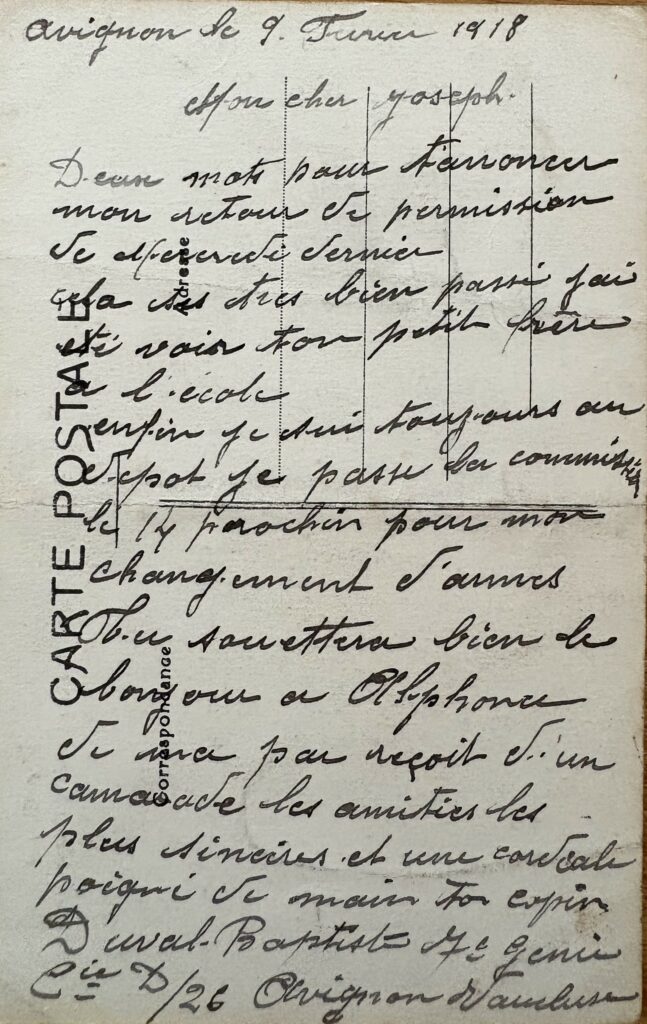 Avignon le 9. Fevrier 1918
Mon cher Joseph.
Deux mots pour t'annoncer
mon retour de permission
de Mercredi dernier
cela ses tres bien passé jai
eté voir ton petit frère
a l'école
enfin je sui toujours au
depot je passe la commission
le 14 parochin pour mon
changement d'armes
Tu souettera bien le
bonjour a Alphonce
de ma par reçoit d'un
camarade les amitiés les
plus sinceires et une cordeale
poigné de main ton copin
Duval-Baptiste 7e Genie
Cie D/26 Avignon Vaucluse
CARTE POSTALE
Correspondance
Adresse